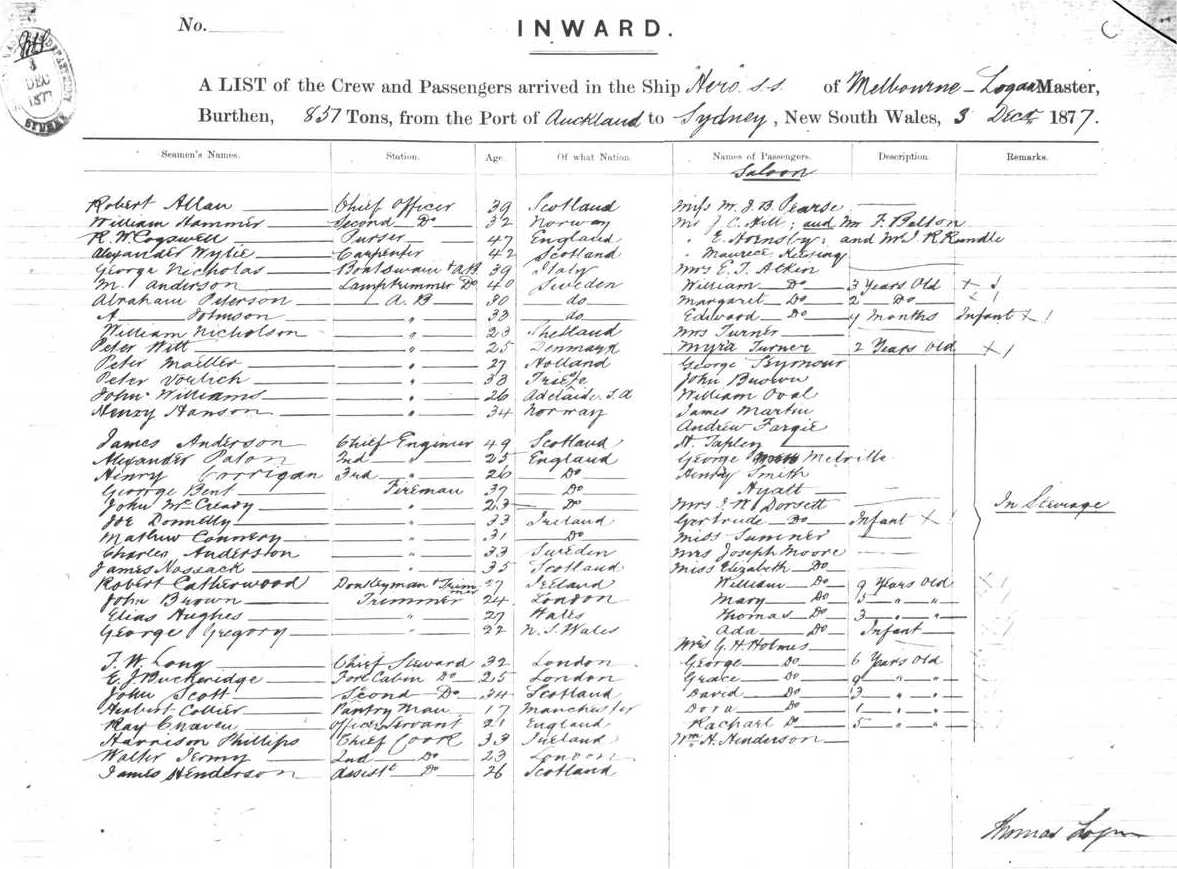 No.
INWARD.
A LIST of the Crew and Passengers arrived in the Ship "Hero" s.s. of Melbourne - Logan Master,
Burthen, 857 Tons, from the Port of Auckland to Sydney, New South Wales, 3 Decr 1877.
DEC
1877
Seamen's Names. Station. Age. Of what Nation. Names of Passengers. Description. Remarks.
Saloon
Robert Allan Chief Officer 39 Scotland Miss M. J. B. Pearse
William Hammer Second Do 32 Norway Mr J. C. Hill; and Mr F. Balton
R. W. Cogswell Purser 47 England " E. Hornsby; and Mrs J R Rundle
Alexander Wylie Carpenter 42 Scotland " Maurice Keesing
George Nicholas Boatswain & AB 39 Italy Mrs E. T. Atkin
M. Anderson Lamptrimmer Do 40 Sweden William Do 3 Years Old
Abraham Peterson A.B 30 do Margaret Do 2 Do
A Johnson " 33 do Edwood Do 4 months Infant
William Nicholson " 23 Shetland Mrs Turner
Peter Witt " 25 Denmark Myra Turner 2 Years Old
Peter Moeller " 27 Holland George Seymour
Peter " 33 Trieste John Brown
John Williams " 26 Adelaide S.A William Oval
Henry Hanson " 34 Norway James Martin
Andrew Fargie
James Anderson Chief Engineer 49 Scotland Tapley
Alexander Paton 2nd " 25 England George Melville
Henry Corrigan 3rd " 26 Do Henry Smith
George Bent Fireman 37 Do Hyatt
John McCready " 23 Do Mrs J. W. Dorsett In Steerage
Joe Donnelly " 33 Ireland Gertrude Do Infant
Mathew Connery " 31 Do Miss Sumner
Charles Anderston " 33 Sweden Mrs Joseph Moore
James Nossack " 35 Scotland Miss Elizabeth Do
Robert Catherwood Donkeyman & Trimmer 27 Ireland William Do 9 Years Old
John Brown Trimmer 24 London Mary Do " "
Elias Hughes " 27 Wales Thomas Do 3 " "
George Gregory " 22 N.S. Wales Ada Do Infant
Mrs G. H. Holmes
T. W. Long Chief Steward 32 London George Do 6 Years Old
E. J. Buckeridge Fore Cabin Do 25 London Grace Do 9 " "
John Scott Second Do 34 Scotland David Do 3 " "
Herbert Collier Pantry Man 17 Manchester Dora Do 1 " "
Ray Craven Officers Servant 21 England Rachael Do 5 " "
Harrison Phillips Chief Cook 33 Ireland Wm H. Henderson
Walter Jermy 2nd Do 23 London
James Henderson Assist Do 26 Scotland
Thomas Logan